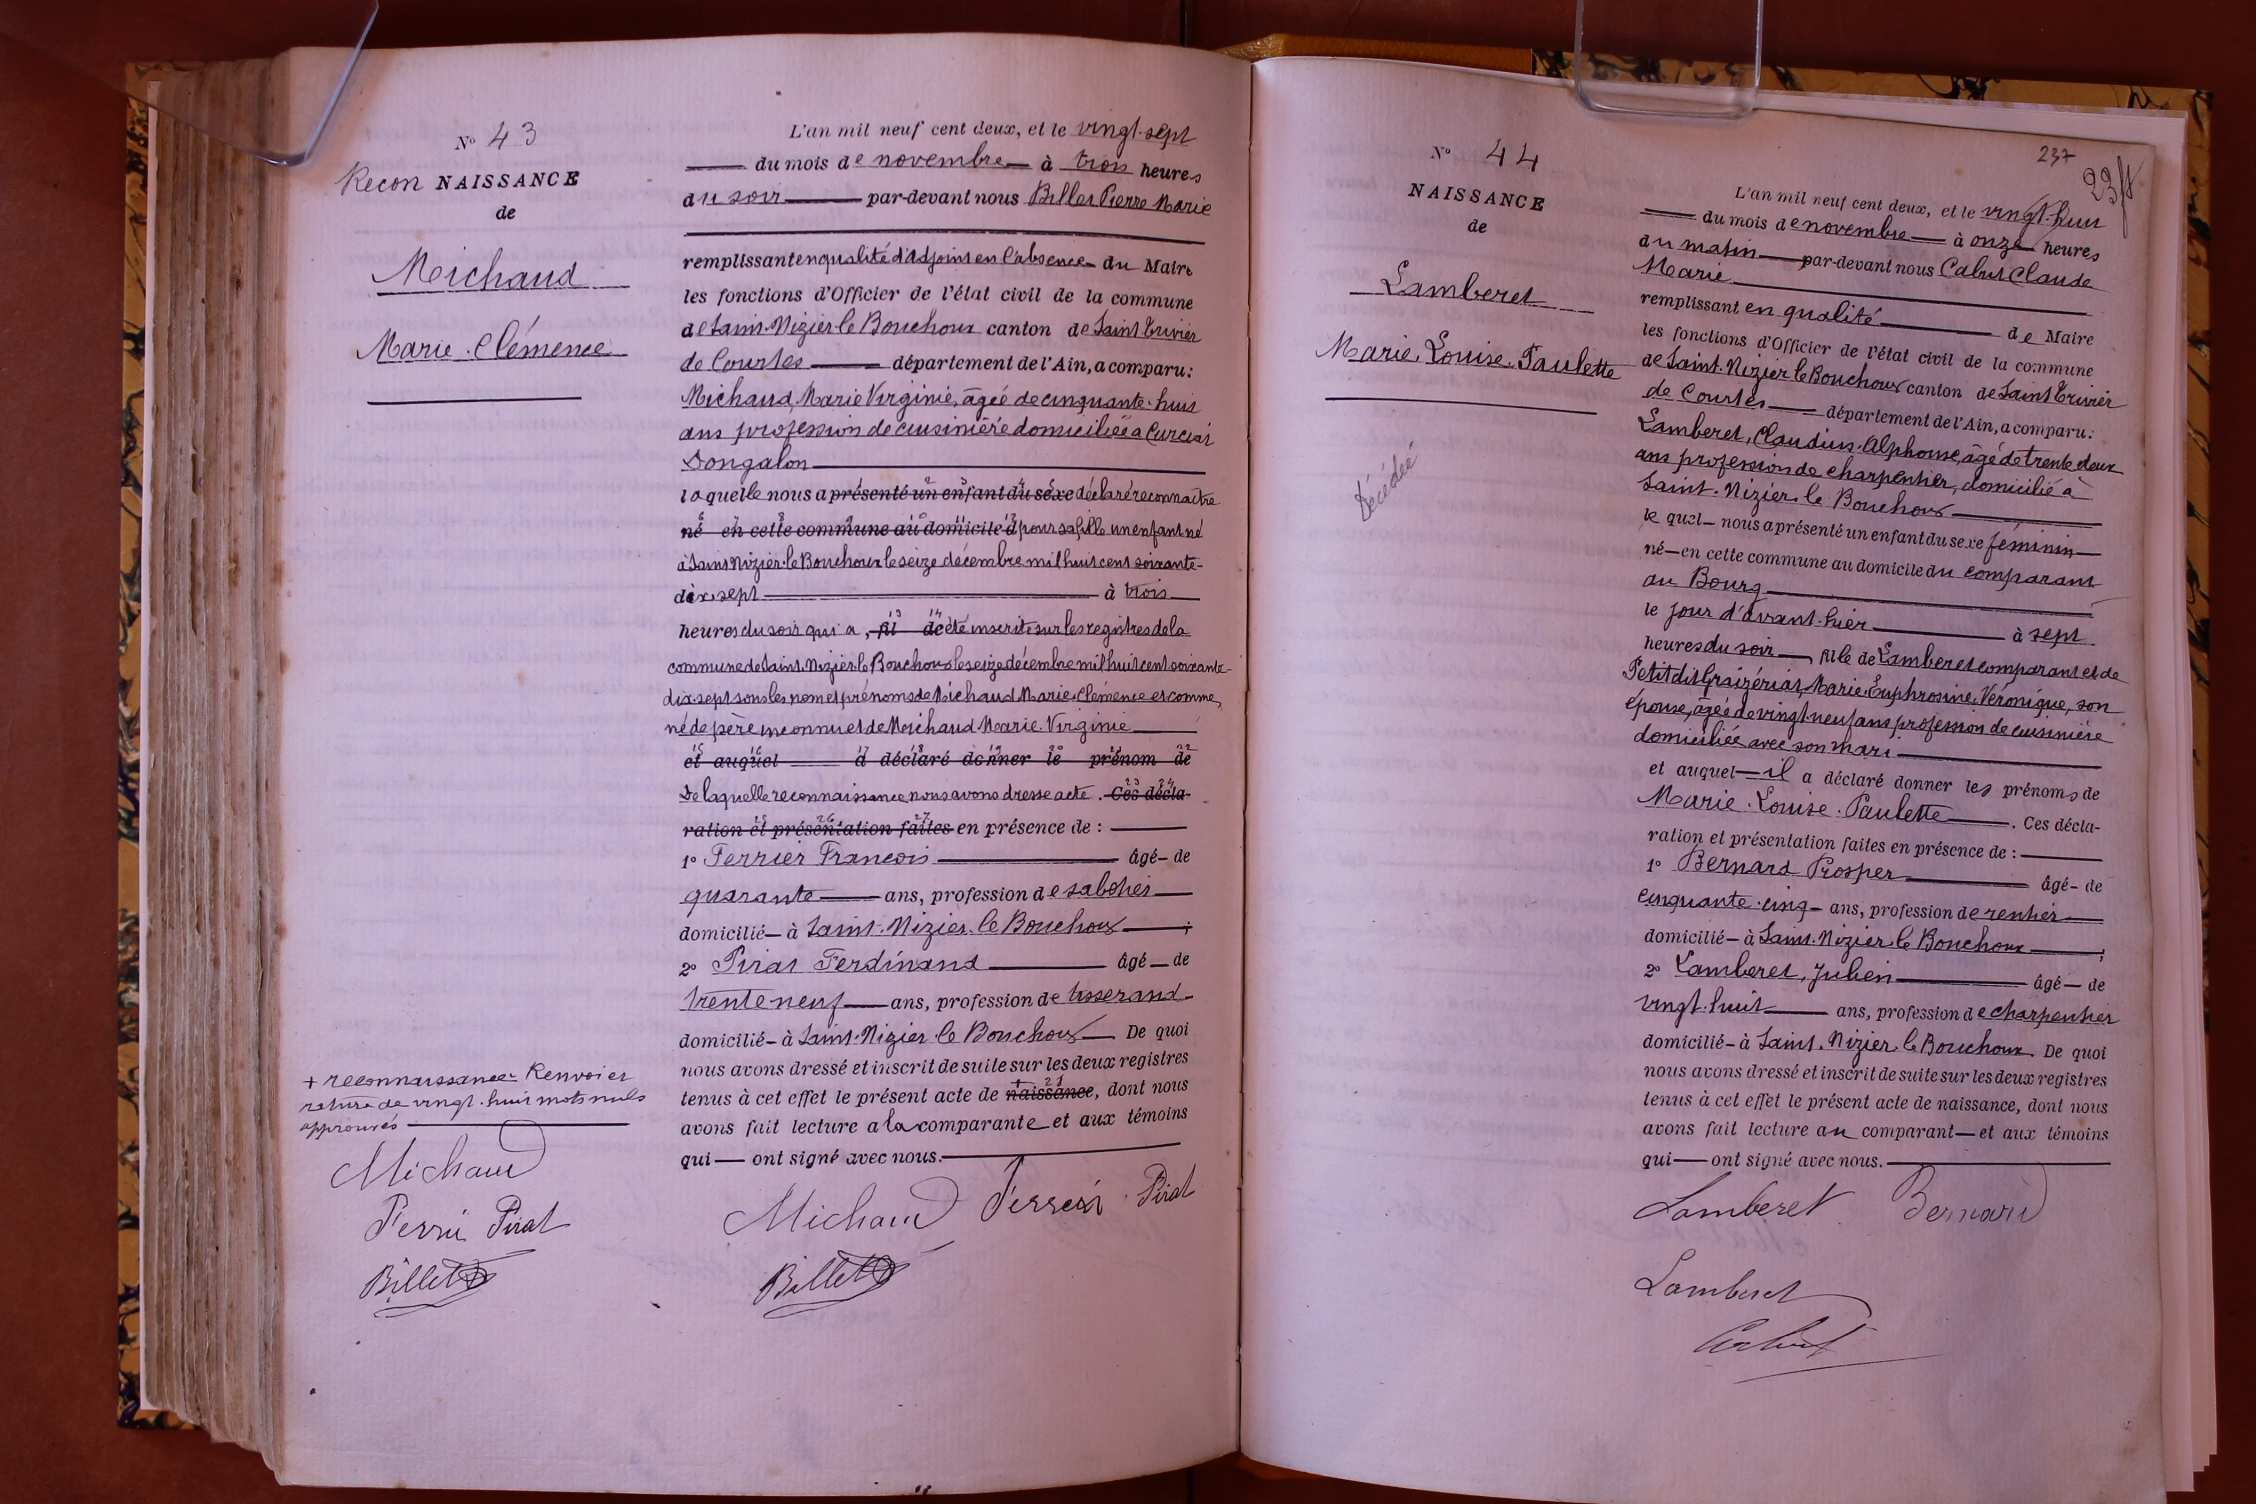 N° 43
Recon NAISSANCE
de
Michaud
Marie. Clémence
L'an mil neuf cent deux, et le vingt-sept
du mois de novembre à trois heures
du soir par-devant nous Billet Pierre Marie
remplissant en qualité d'adjoint en l'absence du Maire
les fonctions d'Officier de l'état civil de la commune
de Saint-Nizier le Bouchoux canton de Saint Trivier
de Courtes département de l'Ain, a comparu:
Michaud, Marie Virginie, âgée de cinquante-huit
ans profession de cuisinière domiciliée à Curciat
Dongalon
laquelle nous a présenté un enfant du sexe déclaré reconnaître
né en cette commune au domicile d pour sa fille un enfant né
à Saint Nizier-le Bouchoux le seize décembre mil huit cent soixante-
dix-sept à trois
heures du soir qui a, fil de été inscrite sur les registres de la
commune de Saint-Nizier-le Bouchoux le seize décembre mil huit cent soixante-
dix-sept sous les nom et prénoms de Michaud Marie-Clémence et comme
né de père inconnu et de Michaud Marie-Virginie
et auquel a déclaré donner le prénom de
De laquelle reconnaissance nous avons dressé acte. Ces décla-
ration et présentation faites en présence de :
1° Ferrier Francois âgé de
quarante ans, profession de sabotier
domicilié à Saint-Nizier-le Bouchoux ;
2° Pirat Ferdinand âgé de
trente neuf ans, profession de tisserand
domicilié à Saint-Nizier-le Bouchoux De quoi
nous avons dressé et inscrit de suite sur les deux registres
tenus à cet effet le présent acte de + naissance, dont nous
avons fait lecture a la comparante et aux témoins
qui ont signé avec nous.
Michaud Ferrier Pirat
Billet
+ reconnaissance Renvoi et
rature de vingt-huit mots nuls
approuvés
Michaud
Ferrier Pirat
Billet
237
N° 44
NAISSANCE
de
Lamberet
Marie. Louise. Paulette
Décédée
L'an mil neuf cent deux, et le vingt-huit
du mois de novembre à onze heures
du matin par-devant nous Cabut Claude
Marie
remplissant en qualité de Maire
les fonctions d'Officier de l'état civil de la commune
de Saint-Nizier le Bouchoux canton de Saint Trivier
de Courtes département de l'Ain, a comparu:
Lamberet, Claudius-Alphonse, âgé de trente deux
ans profession de charpentier, domicilié à
Saint-Nizier-le Bouchoux
lequel nous a présenté un enfant du sexe féminin
né en cette commune au domicile du comparant
au Bourg
le jour d'avant-hier à sept
heures du soir fille de Lamberet comparant et de
Petit dit Graizériat, Marie-Euphrosine, Véronique, son
épouse, âgée de vingt neuf ans profession de cuisinière
domiciliée avec son mari
et auquel il a déclaré donner les prénoms de
Marie. Louise. Paulette. Ces décla-
ration et présentation faites en présence de :
1° Bernard Prosper âgé de
cinquante-cinq ans, profession de rentier
domicilié à Saint-Nizier le Bouchoux ;
2° Lamberet, Julien âgé de
vingt-huit ans, profession de charpentier
domicilié à Saint-Nizier-le Bouchoux. De quoi
nous avons dressé et inscrit de suite sur les deux registres
tenus à cet effet le présent acte de naissance, dont nous
avons fait lecture au comparant et aux témoins
qui ont signé avec nous.
Lamberet Bernard
Lamberet
Cabut